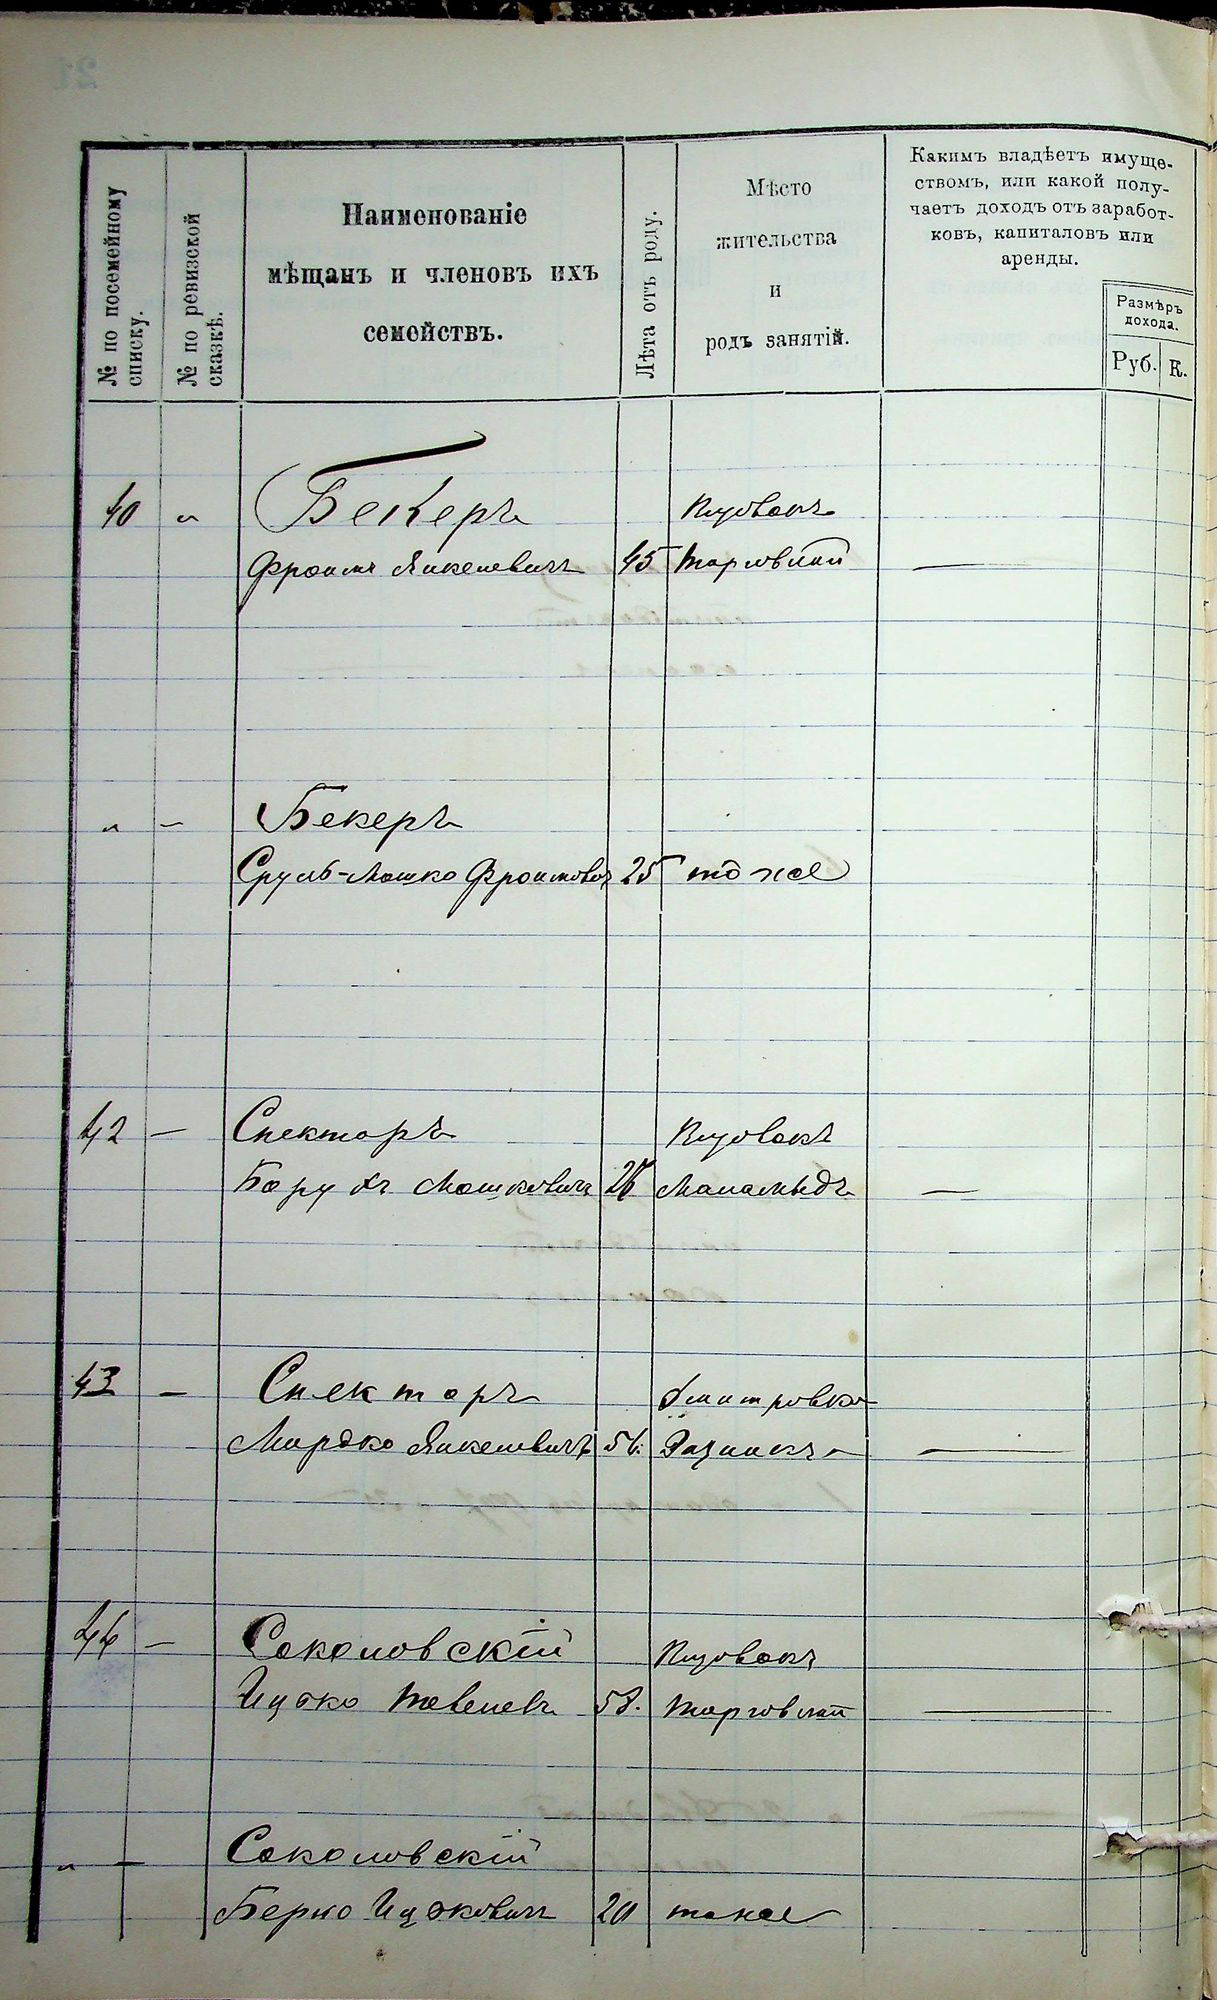 № по посемейному
списку.
№ по ревизской
сказкѣ.
Наименованіе
мѣщанъ и членовъ ихъ
семействъ.
Лѣта отъ роду.
Мѣсто
жительства
и
родъ занятій.
Какимъ владѣетъ имуще-
ствомъ, или какой полу-
чаетъ доходъ отъ заработ-
ковъ, капиталовъ или
аренды.
Размѣръ
дохода.
Руб. К.
40 " Бекеръ
Фроимъ Янкелевичъ 45 Торговлий —
" – Бекеръ
Сруль-Мошко Фроимович 25 то же
42 – Спекторъ
Борухъ Мошковичъ Маламедъ —
43 – Спекторъ Дмитровка
Мордко Янкелевичъ 56. Рѣзникъ —
44 – Соколовскій
Ицко Тевелев 58. Торговлий —
" – Соколовскій
Берко Ицковичъ 20 тоже